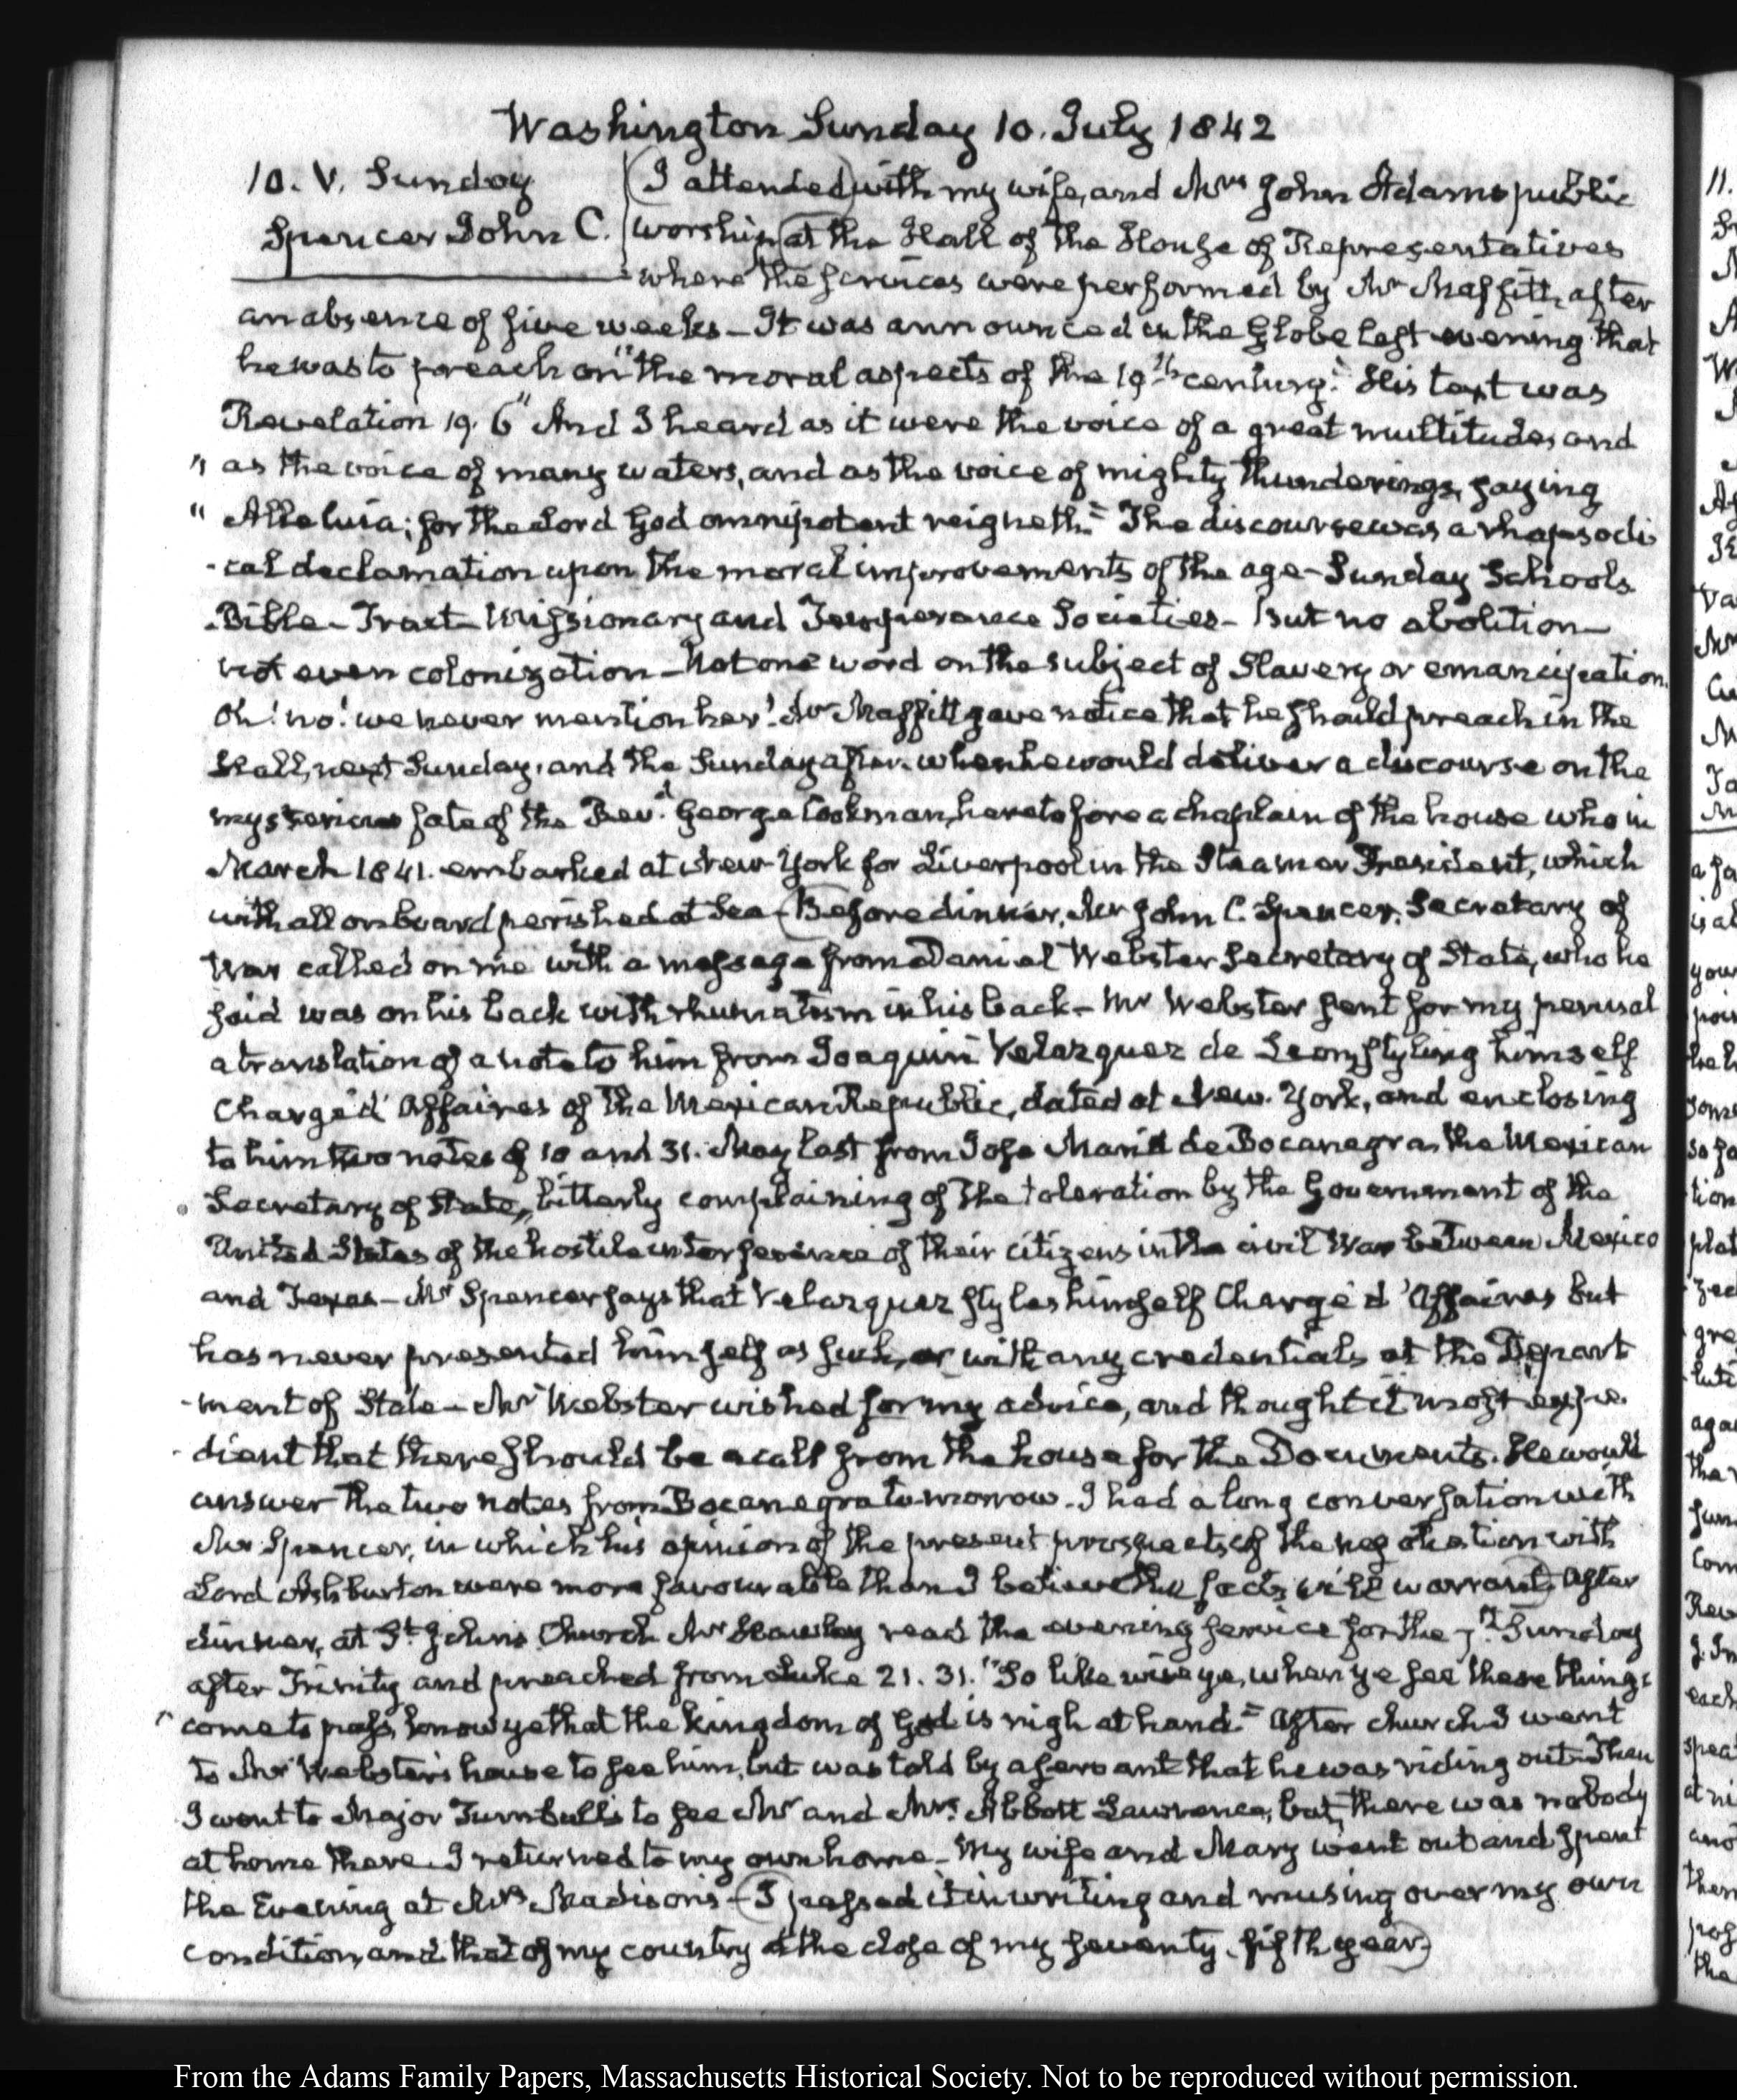 Washington Sunday 10. July 1842
10. V. Sunday
Spencer John C.
I attended with my wife, and Mrs John Adams public
worship at the Hall of the House of Representatives
where the services were performed by Mr Maffitt, after
an absence of five weeks – It was announced in the Globe last evening that
he was to preach on "the moral aspects of the 19th century." His text was
Revelation 19. 6 "And I heard as it were the voice of a great multitude, and
" as the voice of many waters, and as the voice of mighty thunderings, saying
" Alleluia; for the Lord God omnipotent reigneth." The discourse was a rhapsodi
-cal declamation upon the moral improvements of the age – Sunday Schools
Bible – Tract – Missionary and Temperance Societies – But no abolition –
not even colonization – Not one word on the subject of Slavery or emancipation.
Oh! no! we never mention her! Mr Maffitt gave notice that he should preach in the
Hall, next Sunday, and the Sunday after when he would deliver a discourse on the
mysterious fate of the Revd. George Cookman, heretofore a chaplain of the house who in
March 1841. embarked at New-York for Liverpool in the Steamer President, which
with all on board perished at Sea – Before dinner, Mr John C. Spencer, Secretary of
War called on me with a message from Daniel Webster Secretary of State, who he
said was on his back with rhumatism in his back – Mr Webster sent for my perusal
a translation of a note to him from Joaquin Velazquez de Leon, styling himself
Chargé d'Affaires of the Mexican Republic, dated at New-York, and enclosing
to him two notes of 10 and 31. May last from Jose Maria de Bocanegra, the Mexican
Secretary of State, bitterly complaining of the toleration by the Government of the
United States of the hostile interference of their citizens in the civil War between Mexico
and Texas – Mr Spencer says that Velazquez styles himself Chargé d'Affaires but
has never presented himself as such, or with any credentials at the Depart
-ment of State – Mr Webster wished for my advice, and thought it most expe-
-dient that there should be a call from the house for the Documents. He would
answer the two notes from Bocanegra to-morrow. I had a long conversation with
Mr Spencer, in which his opinion of the present prospects of the negotiation with
Lord Ashburton were more favourable than I believe the facts will warrant. After
dinner, at St. John's Church Mr Hawley read the evening service for the 7th Sunday
after Trinity and preached from Luke 21. 31. "So likewise ye, when ye see these things
" come to pass, know ye that the kingdom of God is nigh at hand." After church I went
to Mr Webster's house to see him, but was told by a servant that he was riding out – Then
I went to Major Turnbull's to see Mr and Mrs. Abbott Lawrence, but there was nobody
at home there. I returned to my own home – My wife and Mary went out and spent
the Evening at Mrs Madison's – I passed it in writing and musing over my own
condition, and that of my country at the close of my seventy-fifth year.
From the Adams Family Papers, Massachusetts Historical Society. Not to be reproduced without permission.